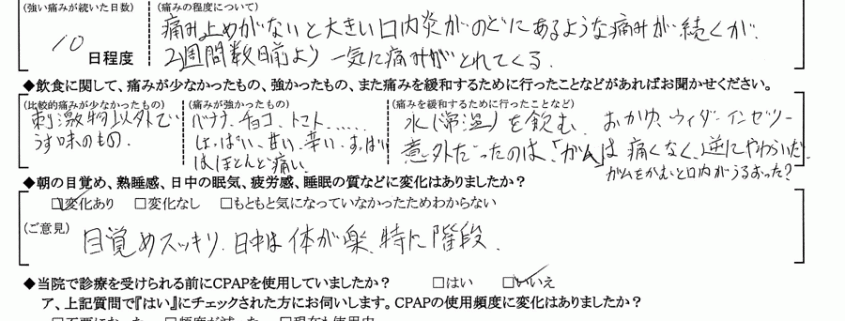 (強い痛みが続いた日数)
10
日程度
(痛みの程度について)
痛み止めがないと大きい口内炎がのどにあるような痛みが続くが
2週間数日前より一気に痛みがとれてくる.
◆飲食に関して、痛みが少なかったもの、強かったもの、また痛みを緩和するために行ったことなどがあればお聞かせください。
(比較的痛みが少なかったもの)
刺激物以外で
うす味のもの.
(痛みが強かったもの)
バナナ. チョコ. トマト......
しょっぱい、甘い、辛い. すっぱい
はほとんど痛い.
(痛みを緩和するために行ったことなど)
水(常温)を飲む. おかゆ、ウィダーインゼリー
意外だったのは、「ガム」は痛くなく、逆にやわらいだ.
ガムをかむと口内がうるおった?
◆朝の目覚め、熟睡感、日中の眠気、疲労感、睡眠の質などに変化はありましたか?
☑変化あり □変化なし □もともと気になっていなかったためわからない
(ご意見)
目覚めスッキリ. 日中は体が楽. 特に階段.
◆当院で診療を受けられる前にCPAPを使用していましたか? □はい ☑いいえ
ア、上記質問で『はい』にチェックされた方にお伺いします。CPAPの使用頻度に変化はありましたか?
□不要になった □頻度が減った □現在も使用中